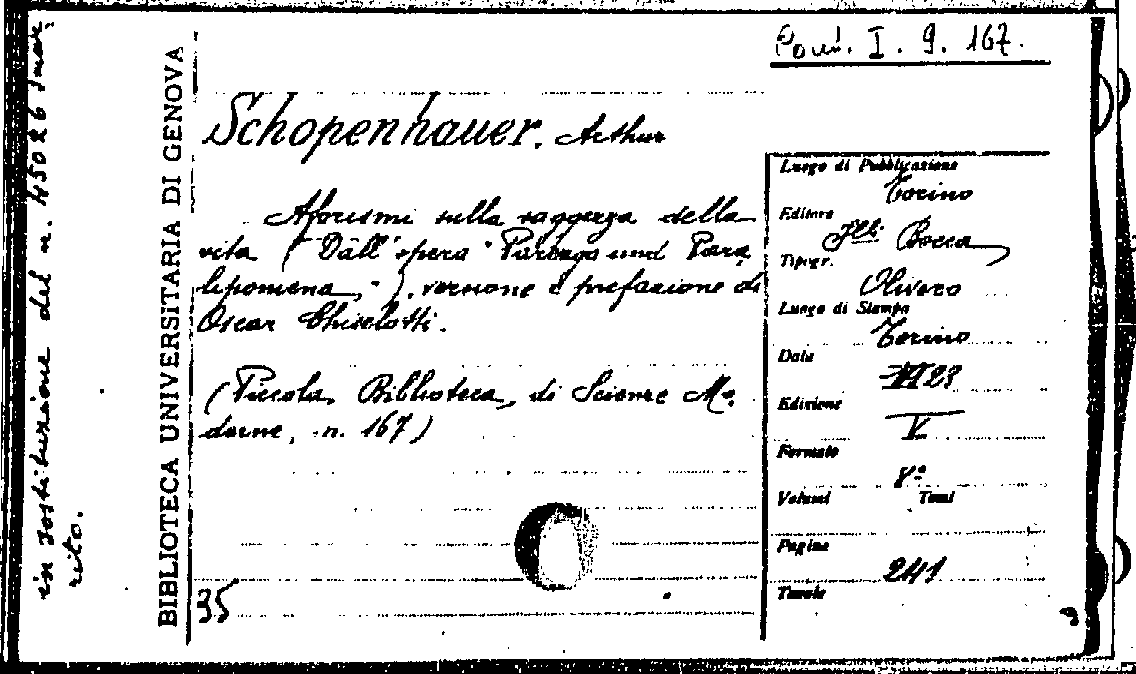 I. 9. 167.
in sostituzione del n. 45026 smar
rito.
BIBLIOTECA UNIVERSITARIA DI GENOVA
Schopenhauer, Arthur
Aforismi sulla saggezza della
vita (Dall'opera "Parerga und Para
lipomena,"), versione e prefazione di
Oscar Chilesotti.
(Piccola Biblioteca di Scienze Mo
derne, n. 167)
35
Luogo di Pubblicazione
Torino
Editore
Flli Bocca
Tipogr.
Olivero
Luogo di Stampa
Torino
Data
1923
Edizione
V
Formato
8º
Volumi Tomi
Pagine
241
Tavole